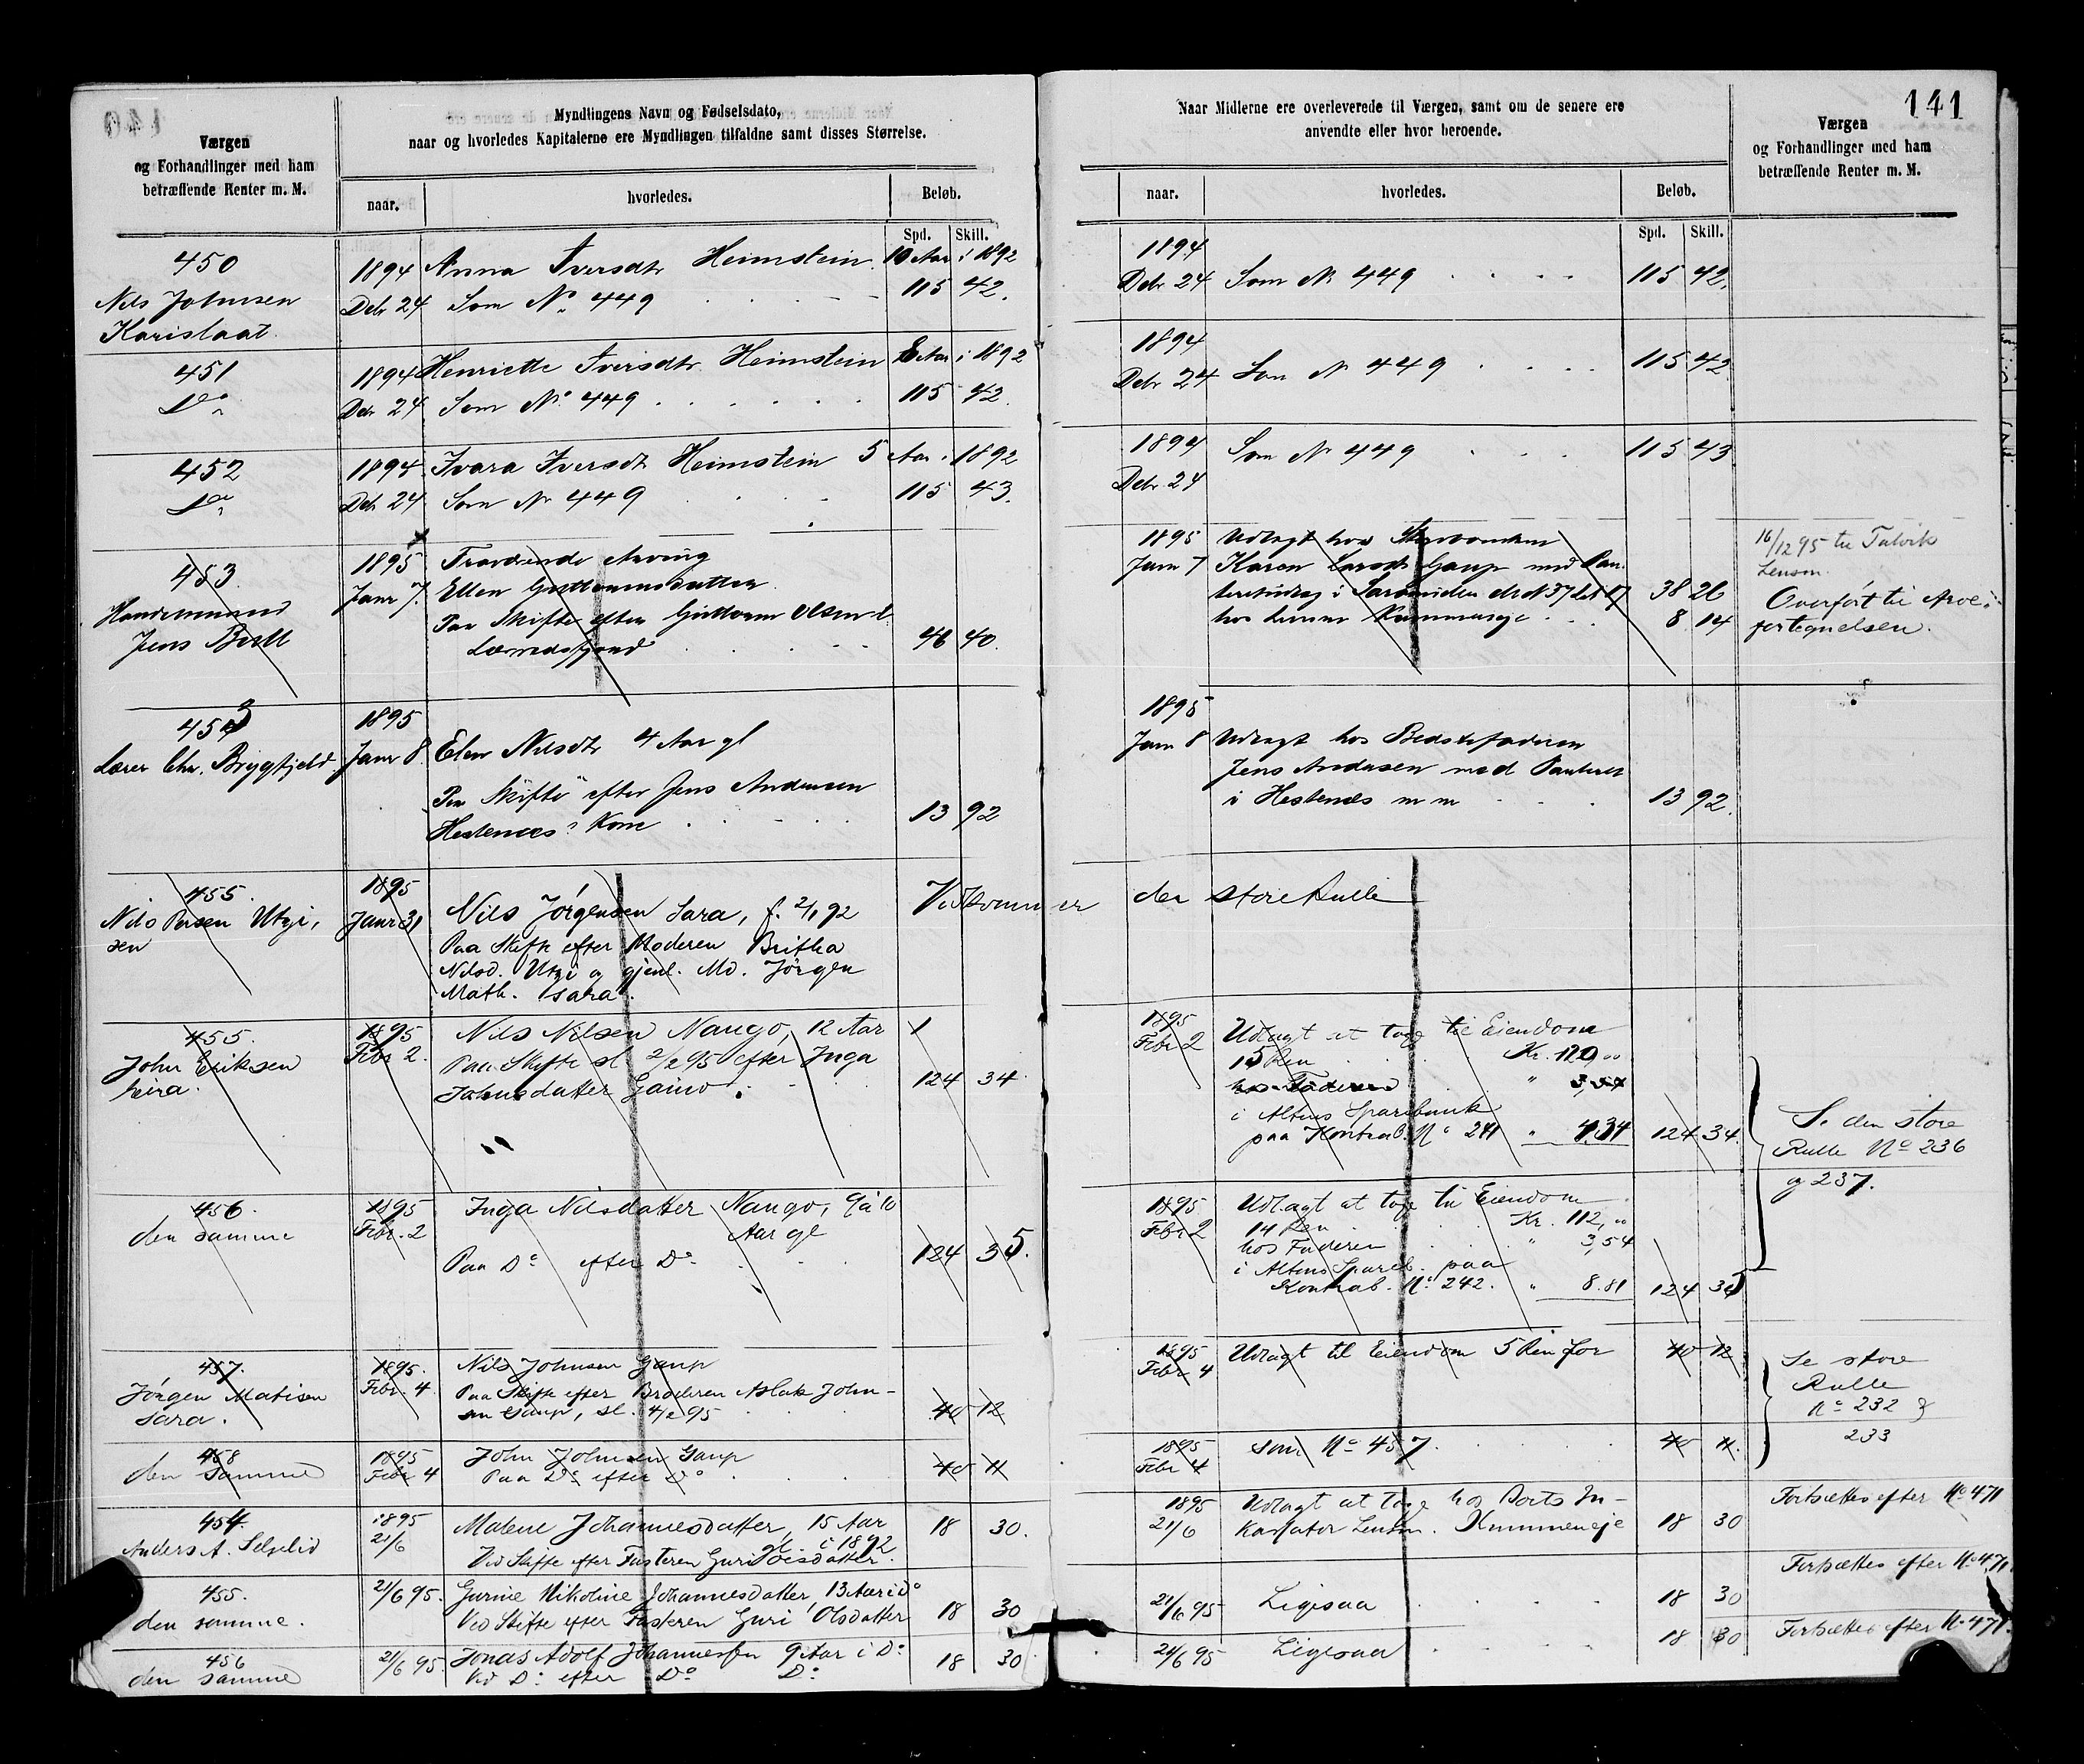 140
Værgen
og Forhandlinger med ham
betræffende Renter m. M.
Myndlingens Navn og Fødselsdato,
naar og hvorledes Kapitalerne ere Myndlingen tilfaldne samt disses Størrelse.
naar.
hvorledes.
Beløb.
Spd. Skill.
450
Nils Johnsen
1894
Dcbr 24
Anna Iversdtr Heimstein. 10 Aar i 1892
Som No 449 115 42.
451
Do
1894
Dcbr 24
Henriette Iversdtr Heimstein 8 Aar i 1892
Som No 449 115 42.
452
Do
1894
Dcbr 24
Ivara Iversdtr Heimstein 5 Aar i 1892
Som Nr 449 115 43.
453
Handelsmand
Jens Buck
1895
Janr 7.
Fraværende Arving
Ellen Guttormsdatter
Paa Skifte efter Guttorm Olsen
46 40.
453
Lærer Chr. Bryggfjeld
1895
Janr 8.
Elen Nilsdtr 4 Aar gl
Paa Skifte efter Jens Andersen
Hestenes' Kone 13 92
455.
Nils Persen Utzi,
sen
1895
Janr 31
Nils Jörgensen Sara, f. 2/1 92
Paa Skifte efter Moderen Britha
Nilsd. Utzi og gjenl. Md. Jörgen
Math. Sara.
Vedkommer den store Rulle
455.
John Eriksen
1895
Febr 2.
Nils Nilsen Nango, 12 Aar
Paa Skifte sl. 2/2 95 efter Inga
Johnsdatter Gaino 124 34
456.
den samme
1895
Febr. 2
Inga Nilsdatter Nango, 9 à 10
Aar gl
Paa Do efter Do 124 35.
457.
Jörgen Matisen
Sara.
1895.
Febr. 4
Nils Johnsen Gaup
Paa Skifte efter Broderen Aslak John-
sen Gaup, sl. 4/2 95 40 12
458
den samme
1895
Febr 4
John Johnsen Gaup
Paa Do efter Do 40 11
454.
Anders A. Selselid
1895
21/6
Malene Johannesdatter, 15 Aar
gl. i 1892
Ved Skifte efter Fasteren Guri Olsdatter. 18 30.
455.
den samme.
21/6 95.
Gurine Nikoline Johannesdatter, 13 Aar i do
Ved Skifte efter Fasteren Guri Olsdatter 18 30
456
den samme
21/6 95
Jonas Adolf Johannessen 9 Aar i Do
Ved Do efter Do Do 18 30
141
Naar Midlerne ere overleverede til Værgen, samt om de senere ere
anvendte eller hvor beroende.
Værgen
og Forhandlinger med ham
betræffende Renter m. M.
naar.
hvorledes.
Beløb.
Spd. Skill.
1894
Dcbr 24 Som No 449 115 42.
1894
Dcbr 24 Som No 449 115 42
1894
Dcbr 24
Som No 449 115 43
1895
Janr 7
Udlagt hos
Karen Larsdtr Gaup med Pan-
38 26
hos Lensm Kummeneje 8 14
16/12 95 til Talvik
Lensm.
Overført til Arve-
fortegnelsen.
1895
Janr 8
Udlagt hos Bedstefaderen
Jens Andersen med Panteret
i Hestenes m m 13 92.
1895
Febr 2
Udlagt at tage til Eiendom
15 Ren Kr. 120,00
hos Faderen
i Altens Sparebank
paa Kontrab. No 241 " 4.34 124 34.
Se den store
Rulle No 236
og 237.
1895
Febr 2
Udlagt at tage til Eiendom
14 Ren Kr. 112,00
hos Faderen " 3,54
i Altens Spareb. paa
Kontrab. No 242. " 8.81 124 35
1895
Febr 4
Udlagt til Eiendom 5 Ren for 40 12
Se store
Rulle
No 232 &
233
1895
Febr 4
som No 457. 40 11.
1895
21/6
Udlagt at tage hos Borts In-
kassator Lensm. Kummeneje 18 30
Fortsættes efter No 471
21/6 95 Ligesaa 18 30
Fortsættes efter No 471.
21/6 95 Ligesaa 18 30
Fortsættes efter No 471.